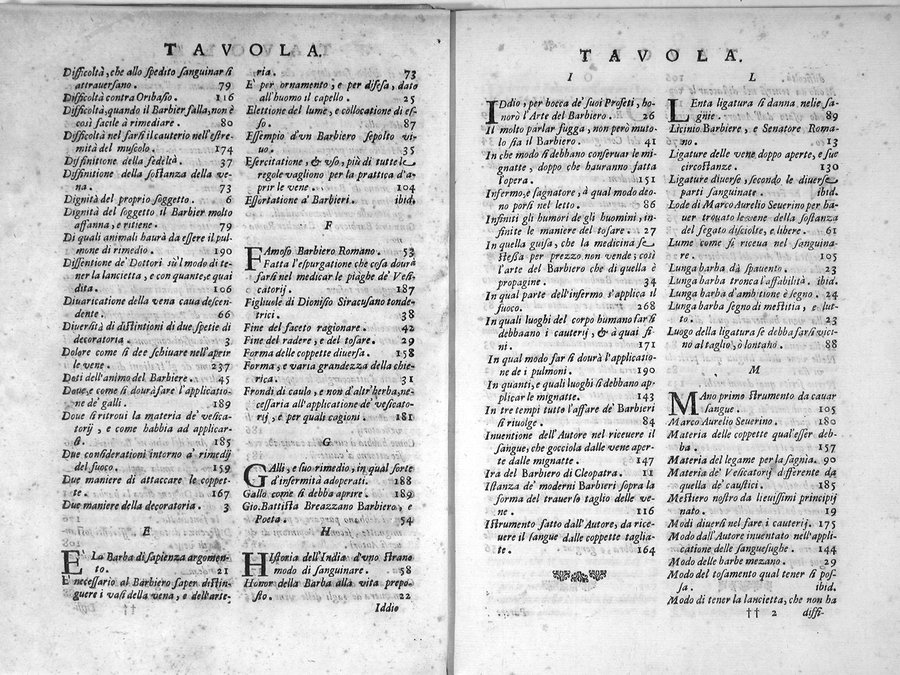 TAVOLA.
Difficoltà, che allo spedito sanguinar si
attrauersano. 79
Difficoltà contra Oribasio. 116
Difficoltà, quando il Barbier falla, non è
così facile à rimediare. 80
Difficoltà nel farsi il cauterio nell'estre-
mità del muscolo. 174
Diffinitione della fedeltà. 37
Diffinitione della sostanza della ve-
na. 73
Dignità del proprio soggetto. 6
Dignità del soggetto il Barbier molto
affanna, e ritiene. 79
Di quali animali haurà da essere il pul-
mone di rimedio. 190
Dissentione de' Dottori sù'l modo di te-
ner la lancietta, e con quante, e quai
dita. 106
Diuaricatione della vena caua descen-
dente. 66
Diuersità di distintioni di due spetie di
decoratoria. 3
Dolore come si dee schiuare nell'aprir
le vene. 237
Doti dell'animo del Barbiere. 45
Doue, e come si dourà far l'applicatio-
ne de' galli. 189
Doue si ritroui la materia de' vesica-
torij, e come habbia ad applicar-
si. 185
Due considerationi intorno a' rimedij
del fuoco. 159
Due maniere di attaccare le coppet-
te. 167
Due maniere della decoratoria. 3
E
E' La Barba di sapienza argomen-
to. 21
E' necessario al Barbiero saper distin-
guere i vasi della vena, e dell'arte-
ria. 73
E' per ornamento, e per difesa, dato
all'huomo il capello. 25
Elettione del lume, e collocatione di es-
so. 87
Essempio d'vn Barbiero sepolto vi-
uo. 35
Esercitatione, & vso, più di tutte le
regole vagliono per la prattica d'a-
prir le vene. 104
Essortatione a' Barbieri. ibid.
F
FAmoso Barbiero Romano. 53
Fatta l'espurgatione che cosa dourà
farsi nel medicar le piaghe de' Vesi-
catorij. 187
Figliuole di Dionisio Siracusano tonde-
trici. 38
Fine del faceto ragionare. 42
Fine del radere, e del tosare. 29
Forma delle coppette diuersa. 158
Forma, e varia grandezza della chie-
rica. 31
Frondi di caulo, e non d'altr'herba, ne-
cessaria all'applicatione de' vesicato-
rij, e per quali cagioni. 181
G
GAlli, e suo rimedio, in qual sorte
d'infermità adoperati. 188
Gallo come si debba aprire. 189
Gio. Battista Breazzano Barbiero, e
Poeta. 54
H
HIstoria dell'India d'vno strano
modo di sanguinare. 58
Honor della Barba alla vita prepo-
sto. 22
Iddio
TAVOLA.
I
IDdio, per bocca de' suoi Profeti, ho-
norò l'Arte del Barbiero. 26
Il molto parlar fugga, non però muto-
lo sia il Barbiero. 41
In che modo si debbano conseruar le mi-
gnatte, doppo che hauranno fatta
l'opera. 151
Infermo, e sagnatore, à qual modo deo-
no porsi nel letto. 86
Infiniti gli humori de gli huomini, in-
finite le maniere del tosare. 27
In quella guisa, che la medicina se
stessa per prezzo non vende; così
l'arte del Barbiero che di quella è
propagine. 34
In qual parte dell'infermo s'applica il
fuoco. 268
In quali luoghi del corpo humano farsi
debbiano i cauterij, & à quai fi-
ni. 171
In qual modo far si dourà l'applicatio-
ne de i pulmoni. 190
In quanti, e quali luoghi si debbano ap-
plicar le mignatte. 143
In tre tempi tutto l'affare de' Barbieri
si riuolge. 84
Inuentione dell'Autore nel riceuere il
sangue, che gocciola dalle vene aper-
te dalle mignatte. 147
Ira del Barbiero di Cleopatra. 11
Istanza de' moderni Barbieri sopra la
forma del trauerso taglio delle ve-
ne. 116
Istrumento fatto dall'Autore, da rice-
uere il sangue dalle coppette taglia-
te. 164
L
LEnta ligatura si danna nelle sa-
gnie. 89
Licinio Barbiere, e Senatore Roma-
no. 13
Ligature delle vene doppo aperte, e sue
circostanze. 130
Ligature diuerse, secondo le diuerse
parti sanguinate. ibid.
Lode di Marco Aurelio Seuerino per ha-
uer trouate le vene della sostanza
del fegato disciolte, e libere. 61
Lume come si riceua nel sanguina-
re. 105
Lunga barba dà spauento. 23
Lunga barba tronca l'affabilità. ibid.
Lunga barba d'ambitione è segno. 24
Lunga barba segno di mestitia, e lut-
to. 23
Luogo della ligatura se debba farsi vici-
no al taglio, ò lontano. 88
M
MAno primo strumento da cauar
sangue. 105
Marco Aurelio Seuerino. 180
Materia delle coppette qual'esser deb-
ba. 157
Materia del legame per la sagnia. 90
Materia de' Vesicatorij differente da
quella de' caustici. 185
Mestiero nostro da lieuissimi principij
nato. 19
Modi diuersi nel fare i cauterij. 175
Modo dall'Autore inuentato nell'appli-
catione delle sanguesughe. 144
Modo delle barbe mezano. 29
Modo del tosamento qual tener si pos-
sa. ibid.
Modo di tener la lancietta, che non ha
†† 2 diffi-